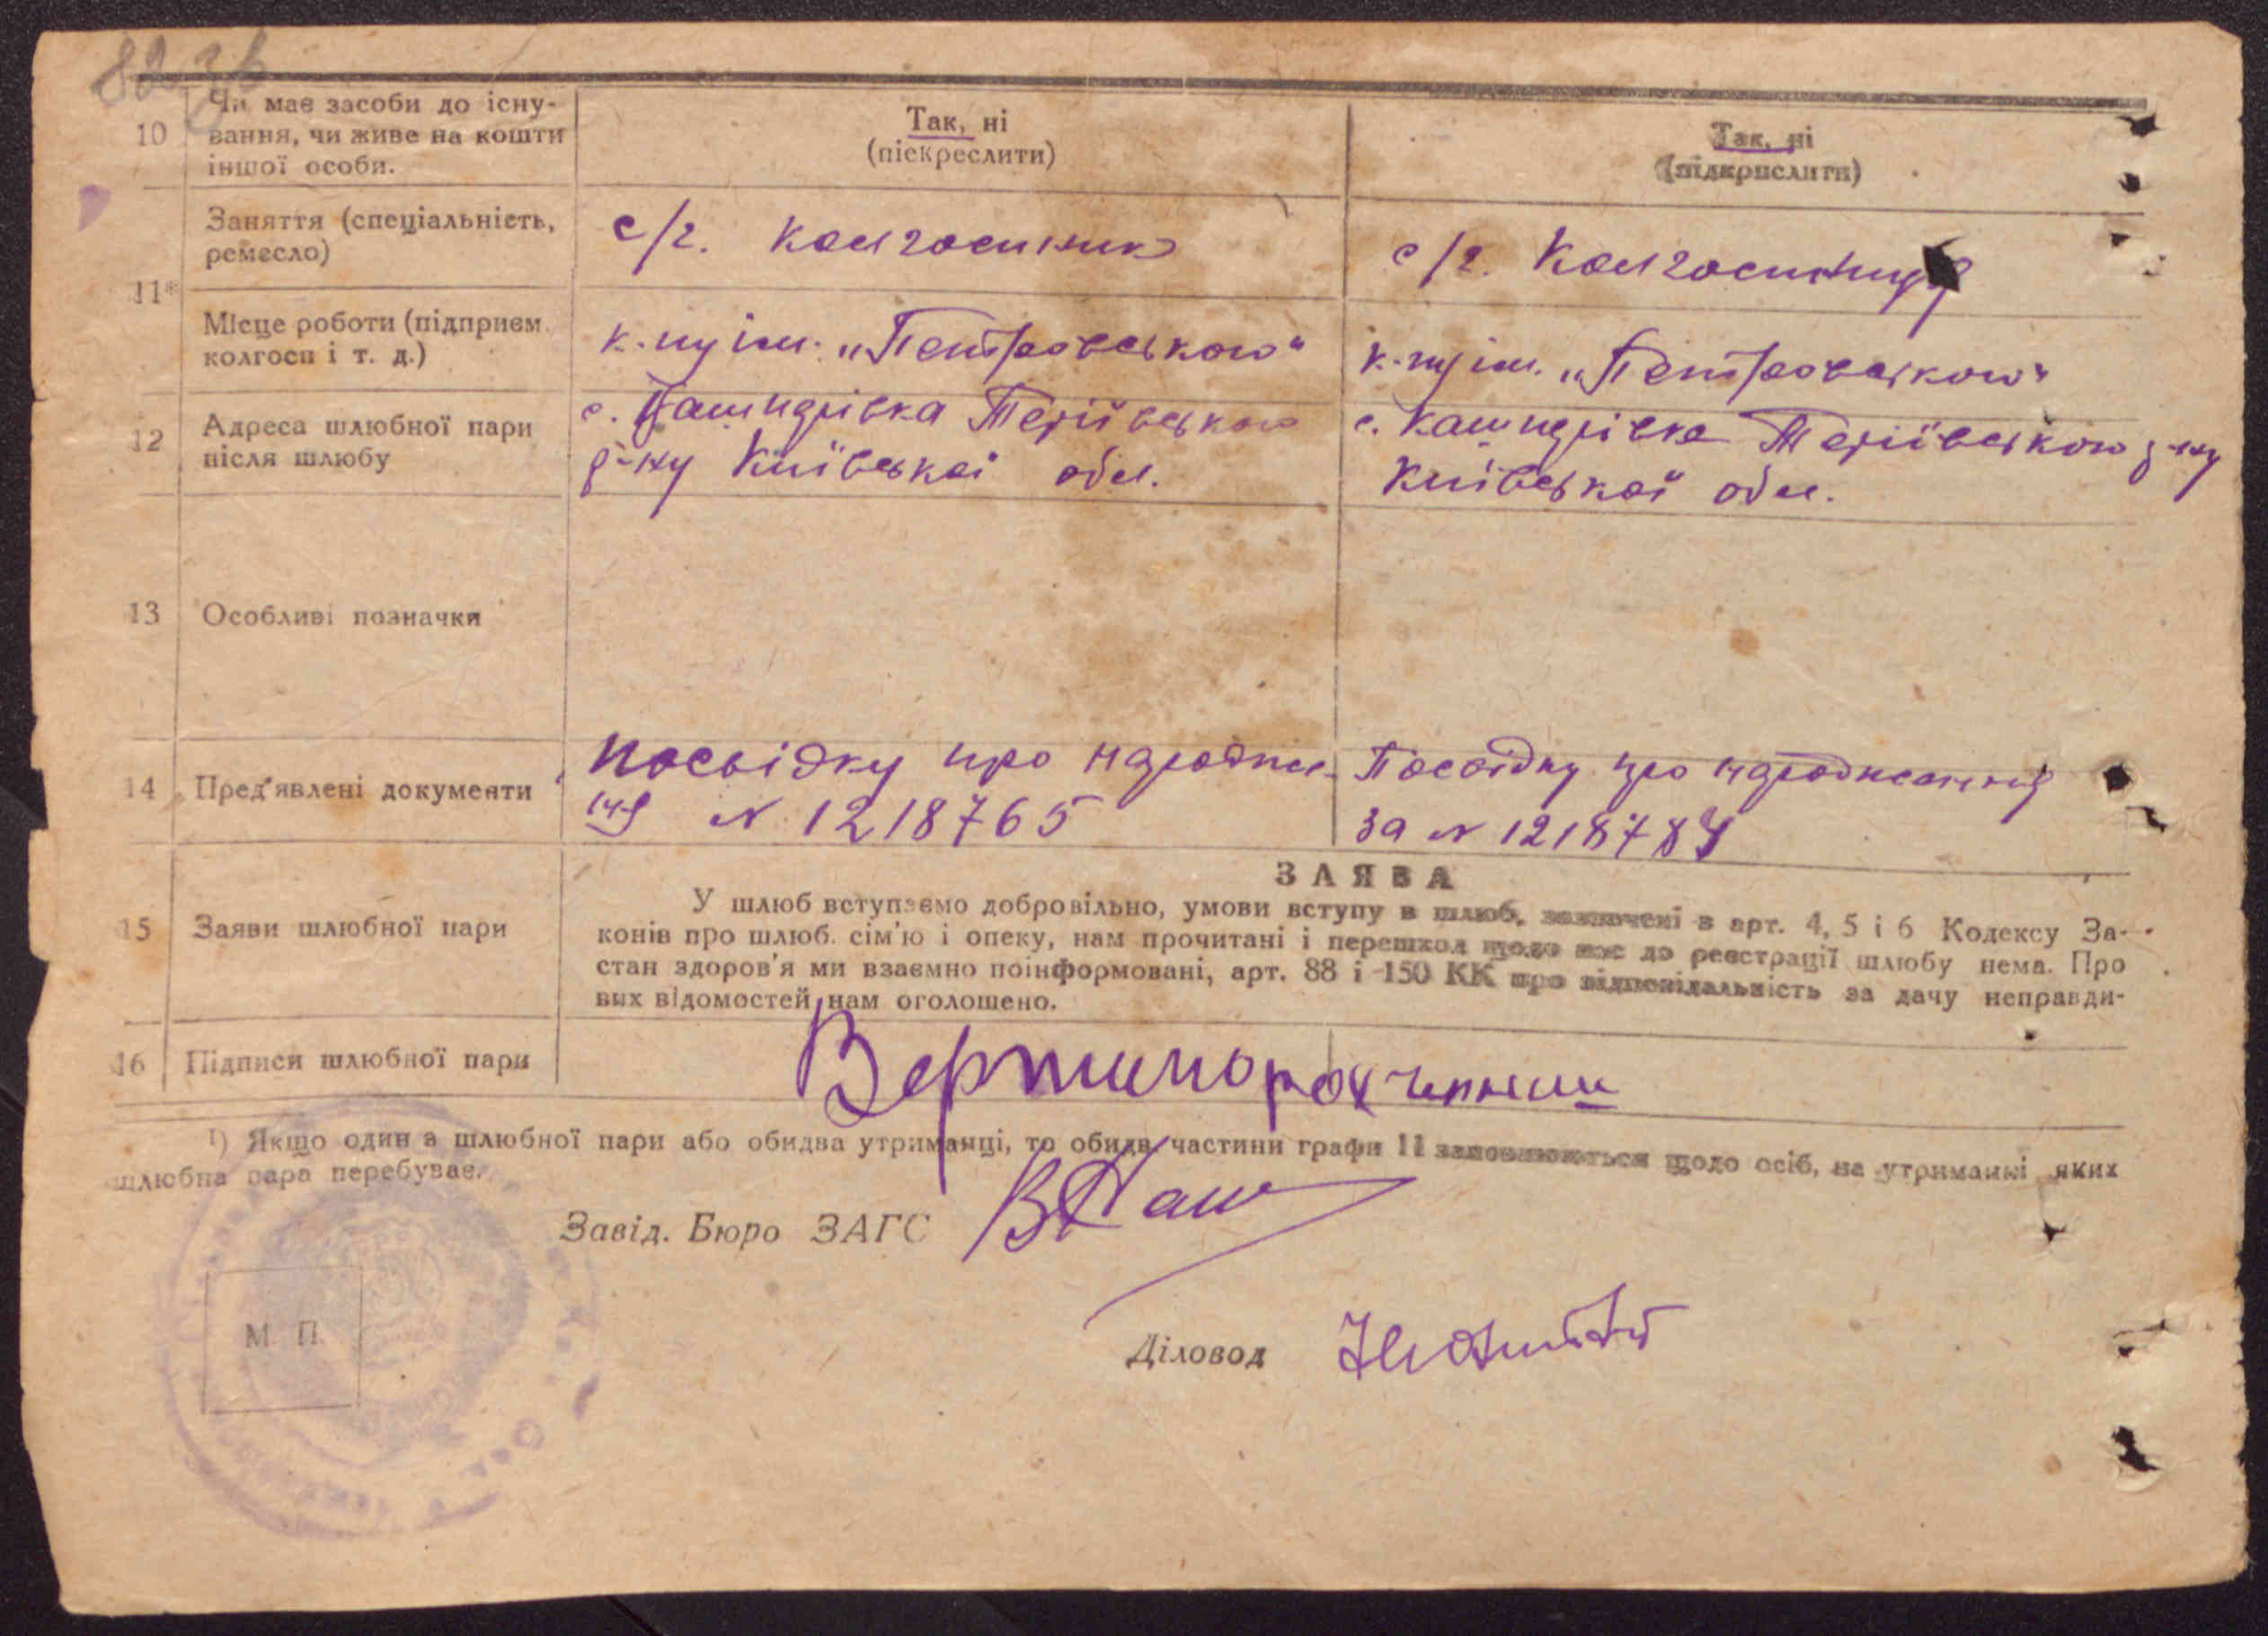 10 Чи має засоби до існу-
вання, чи живе на кошти
іншої особи.
Так, ні
(піскреслити)
Так, ні
(підкрислити)
11* Заняття (спеціальність,
ремесло)
с/г. колгоспник
с/г. Колгоспниця
Місце роботи (підприєм.
колгосп і т. д.)
к-пу ім. „Петровського"
к-пу ім. „Петровського"
12 Адреса шлюбної пари
після шлюбу
с. Кашперівка Тетіївського
р-ну Київської обл.
с. Кашперівка Тетіївського р-ну
Київської обл.
13 Особливі позначки
14 Пред'явлені документи
Посвідку про народжен-
ня N 1218765
Посвідку про народження
за N
15 Заяви шлюбної пари
ЗАЯВА
У шлюб вступаємо добровільно, умови вступу в шлюб, зазначені в арт. 4, 5 і 6 Кодексу За-
конів про шлюб. сім'ю і опеку, нам прочитані і перешкод щодо нас до реєстрації шлюбу нема. Про
стан здоров'я ми взаємно поінформовані, арт. 88 і 150 КК про відповідальність за дачу неправди-
вих відомостей нам оголошено.
16 Підписи шлюбної пари
1) Якщо один з шлюбної пари або обидва утриманці, то обидві частини графи 11 заповнюються щодо осіб, на утриманні яких
шлюбна пара перебуває.
Завід. Бюро ЗАГС
М. П.
Діловод